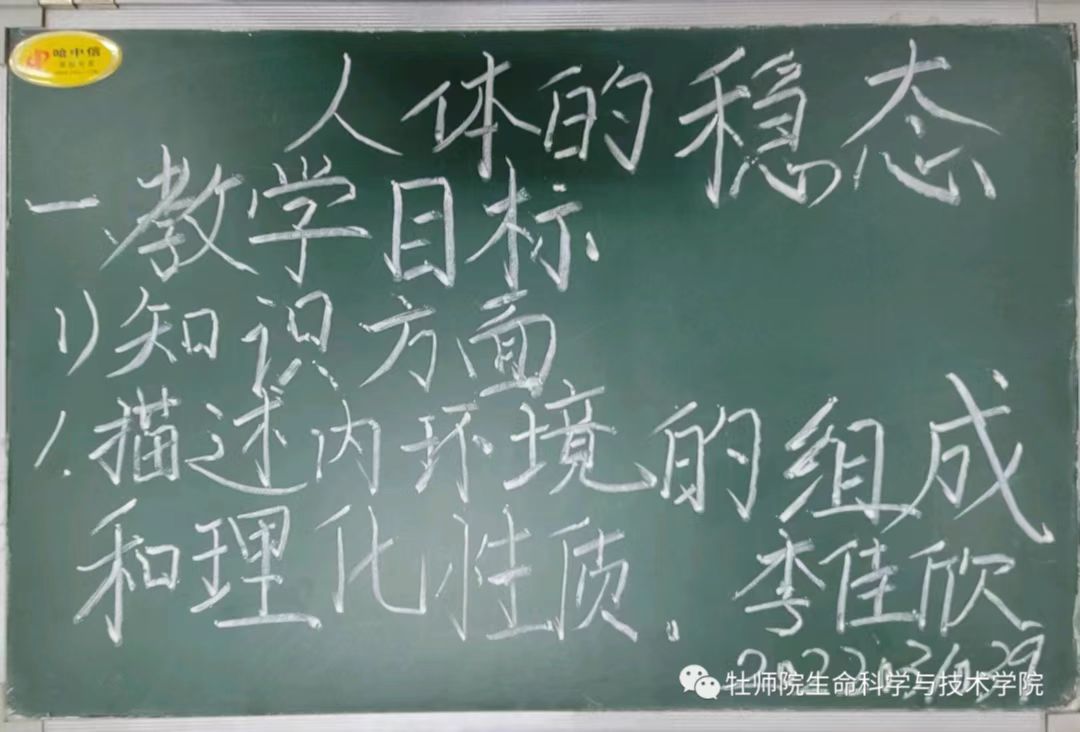 哈中信
人体的稳态
一、教学目标
1)知识方面
1.描述内环境的组成
和理化性质.
李佳欣
牡师院生命科学与技术学院